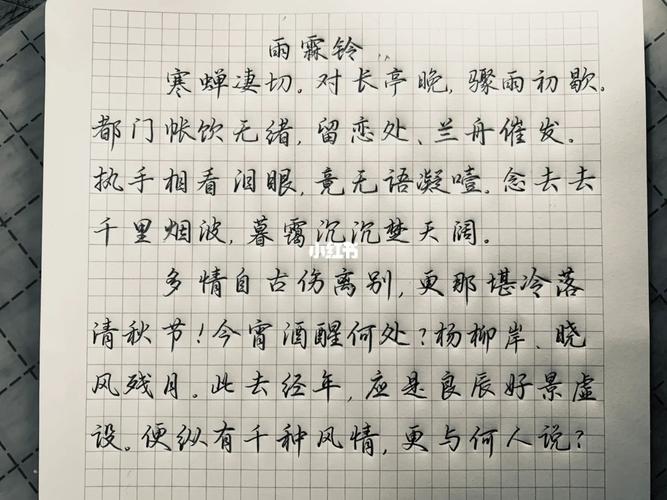 雨霖铃
寒蝉凄切。对长亭晚，骤雨初歇。
都门帐饮无绪，留恋处、兰舟催发。
执手相看泪眼，竟无语凝噎。念去去
千里烟波，暮霭沉沉楚天阔。
小红书
多情自古伤离别，更那堪冷落
清秋节！今宵酒醒何处？杨柳岸、晓
风残月。此去经年，应是良辰好景虚
设。便纵有千种风情，更与何人说？